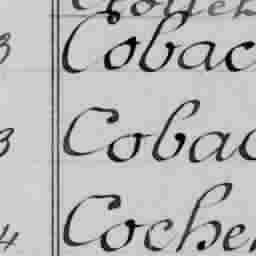 3 Cobac
3 Cobac
4 Cocher